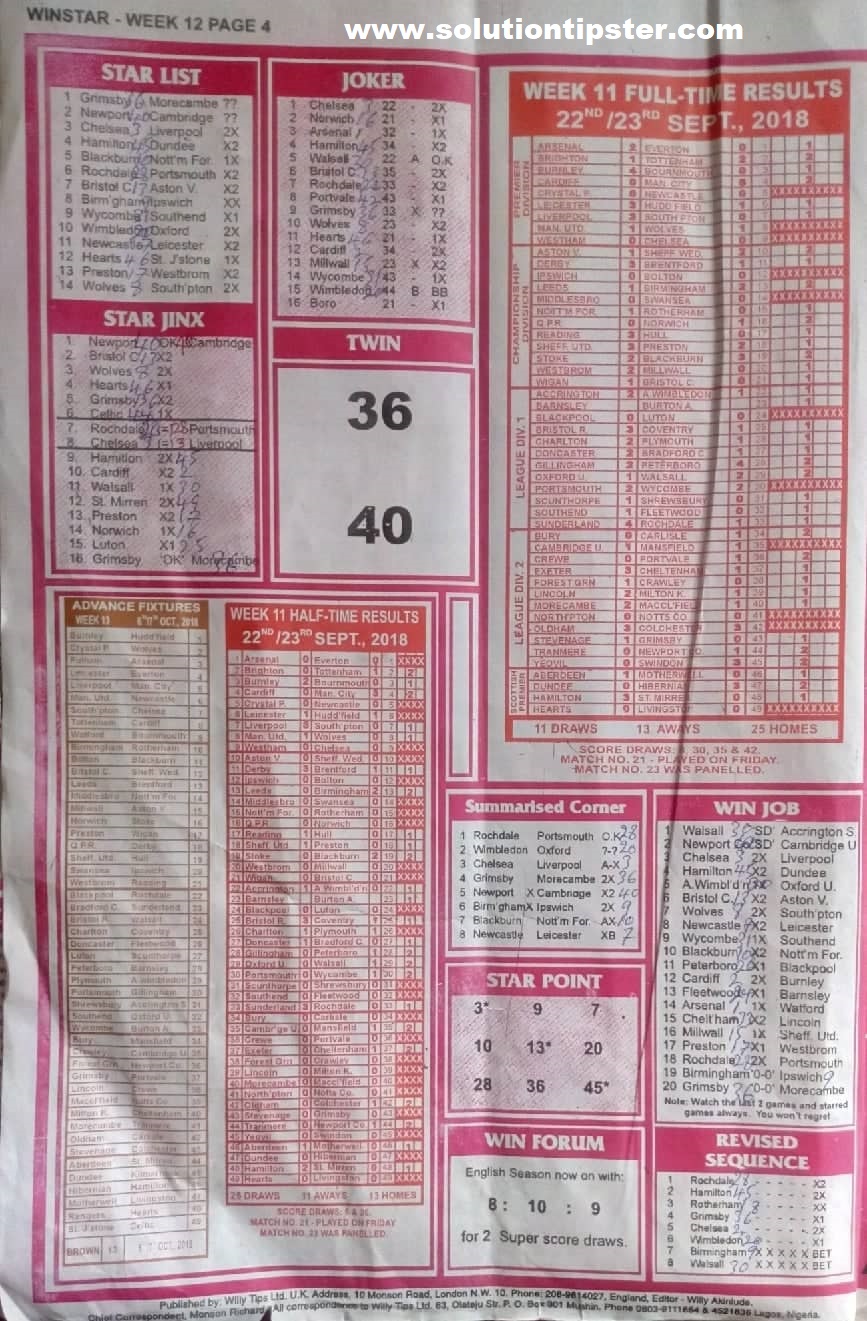 WINSTAR - WEEK 12 PAGE 4
www.solutiontipster.com
STAR LIST
1 Grimsby 36 Morecambe ??
2 Newport 40 Cambridge ??
3 Chelsea 3 Liverpool 2X
4 Hamilton 45 Dundee X2
5 Blackburn Nott'm For. 1X
6 Rochdale 28 Portsmouth X2
7 Bristol C 17 Aston V. X2
8 Birm'gham Ipswich XX
9 Wycombe Southend X1
10 Wimbled Oxford 2X
11 Newcastle 7 Leicester X2
12 Hearts 46 St. J'stone 1X
13 Preston 17 Westbrom X2
14 Wolves 8 South'pton 2X
STAR JINX
1. Newport 40 'OK' Cambridge
2. Bristol C 17 X2
3. Wolves 8 2X
4. Hearts 46 X1
5. Grimsby 36 X2
6. Celtic 44 1X
7. Rochdale Portsmouth
8. Chelsea Liverpool
9. Hamilton 2X 45
10. Cardiff X2 2
11. Walsall 1X 30
12. St. Mirren 2X 49
13. Preston X2 17
14. Norwich 1X 16
15. Luton X1 25
16. Grimsby 'OK' Morecambe
JOKER
1 Chelsea 3 22 - 2X
2 Norwich 16 21 - X1
3 Arsenal 1 32 - 1X
4 Hamilton 45 34 - X2
5 Walsall 30 22 A O.K
6 Bristol C 35 - 2X
7 Rochdale 33 - X2
8 Portvale 43 - X1
9 Grimsby 36 33 X ??
10 Wolves 8 23 - X2
11 Hearts 46 21 - 1X
12 Cardiff 2 34 - 2X
13 Millwall 15 23 X X2
14 Wycombe 43 - 1X
15 Wimbledon 44 B BB
16 Boro 21 - X1
TWIN
36
40
WEEK 11 FULL-TIME RESULTS
22ND/23RD SEPT., 2018
PREMIER DIVISION
ARSENAL 2 EVERTON 0
BRIGHTON 1 TOTTENHAM 2
BURNLEY 4 BOURNMOUTH 0
CARDIFF 0 MAN. CITY 5
CRYSTAL P. 0 NEWCASTLE 0
LEICESTER 3 HUDD'FIELD 1
LIVERPOOL 3 SOUTH'PTON 0
MAN. UTD. 1 WOLVES 1
WESTHAM 0 CHELSEA 0
CHAMPIONSHIP DIVISION
ASTON V. 1 SHEFF. WED. 2
DERBY 3 BRENTFORD 1
IPSWICH 0 BOLTON 0
LEEDS 1 BIRMINGHAM 2
MIDDLESBRO 0 SWANSEA 0
NOTT'M FOR. 1 ROTHERHAM 0
Q.P.R. 0 NORWICH 1
READING 3 HULL 0
SHEFF. UTD. 3 PRESTON 2
STOKE 2 BLACKBURN 3
WESTBROM 2 MILLWALL 0
WIGAN 1 BRISTOL C. 0
LEAGUE DIV. 1
ACCRINGTON 2 A.WIMBLEDON 1
BARNSLEY BURTON A.
BLACKPOOL 0 LUTON 0
BRISTOL R. 3 COVENTRY 1
CHARLTON 2 PLYMOUTH 1
DONCASTER 2 BRADFORD C 1
GILLINGHAM 2 PETERBORO 4
OXFORD U. 1 WALSALL 2
PORTSMOUTH 2 WYCOMBE 2
SCUNTHORPE 1 SHREWSBURY 0
SOUTHEND 1 FLEETWOOD 0
SUNDERLAND 4 ROCHDALE 1
LEAGUE DIV. 2
BURY 0 CARLISLE 1
CAMBRIDGE U. 1 MANSFIELD 1
CREWE 0 PORTVALE
EXETER 3 CHELTENHAM 1
FOREST GRN 1 CRAWLEY 0
LINCOLN 2 MILTON K. 1
MORECAMBE 2 MACCL'FIELD 1
NORTH'PTON 0 NOTTS CO 0
OLDHAM 3 COLCHESTER 3
STEVENAGE 1 GRIMSBY 0
TRANMERE 0 NEWPORT CO. 1
YEOVIL 0 SWINDON 3
SCOTTISH PREMIER
ABERDEEN 1 MOTHERWELL 0
DUNDEE 0 HIBERNIAN 3
HAMILTON 3 ST. MIRREN 0
HEARTS 0 LIVINGSTON 0
11 DRAWS 13 AWAYS 25 HOMES
SCORE DRAWS: 8, 30, 35 & 42.
MATCH NO. 21 - PLAYED ON FRIDAY.
MATCH NO. 23 WAS PANELLED.
ADVANCE FIXTURES
WEEK 13 6TH/7TH OCT, 2018
Burnley Hudd'field 1
Crystal P. Wolves 2
Fulham Arsenal 3
Leicester Everton 4
Liverpool Man. City 5
Man. Utd. Newcastle 6
South'pton Chelsea 7
Tottenham Cardiff 8
Watford Bournmouth 9
Birmingham Rotherham 10
Bolton Blackburn 11
Bristol C. Sheff. Wed. 12
Leeds Brentford 13
Middlesbro Nott'm For 14
Millwall Aston V. 15
Norwich Stoke 16
Preston Wigan 17
Q.P.R. Derby 18
Sheff. Utd. Hull 19
Swansea Ipswich 20
Westbrom Reading 21
Blackpool Rochdale 22
Bradford C. Sunderland 23
Bristol R. Walsall 24
Charlton Coventry 25
Doncaster Fleetwood 26
Luton Scunthorpe 27
Peterboro Barnsley 28
Plymouth A.Wimbledon 29
Portsmouth Gillingham 30
Shrewsbury Accrington S 31
Southend Oxford U. 32
Wycombe Burton A. 33
Bury Mansfield 34
Crawley Cambridge U. 35
Forest Grn Newport Co. 36
Grimsby Portvale 37
Lincoln Crewe 38
Maccl'field Notts Co. 39
Milton K. Cheltenham 40
Morecambe Tranmere 41
Oldham Carlisle 42
Stevenage Colchester 43
Aberdeen St. Mirren 44
Dundee Kilmarnock 45
Hibernian Hamilton 46
Motherwell Livingston 47
Rangers Hearts 48
St. J'stone Celtic 49
BROWN 13 OCT, 2018
WEEK 11 HALF-TIME RESULTS
22ND/23RD SEPT., 2018
1 Arsenal 0 Everton 0 1 XXXX
2 Brighton 0 Tottenham 1 2 2
3 Burnley 2 Bournmouth 0 3 1
4 Cardiff 0 Man. City 3 4 2
5 Crystal P. 0 Newcastle 0 5 XXXX
6 Leicester 1 Hudd'field 1 6 XXXX
7 Liverpool 3 South'pton 0 7 1
8 Man. Utd. 1 Wolves 0 8 1
9 Westham 0 Chelsea 0 9 XXXX
10 Aston V. 0 Sheff. Wed. 0 10 XXXX
11 Derby 3 Brentford 1 11 1
12 Ipswich 0 Bolton 0 12 XXXX
13 Leeds 0 Birmingham 2 13 2
14 Middlesbro 0 Swansea 0 14 XXXX
15 Nott'm For. 0 Rotherham 0 15 XXXX
16 Q.P.R. 0 Norwich 0 16 XXXX
17 Reading 1 Hull 0 17 1
18 Sheff. Utd. 1 Preston 0 18 1
19 Stoke 0 Blackburn 2 19 2
20 Westbrom 0 Millwall 0 20 XXXX
21 Wigan 0 Bristol C. 0 21 XXXX
22 Accrington 1 A.Wimbl'd'n
23 Barnsley Burton A.
24 Blackpool 0 Luton 0 24 XXXX
25 Bristol R. 3 Coventry
26 Charlton 1 Plymouth 1 26 XXXX
27 Doncaster 1 Bradford C. 0 27 1
28 Gillingham 0 Peterboro
29 Oxford U. 1 Walsall
30 Portsmouth 1 Wycombe
31 Scunthorpe 0 Shrewsbury 0 31 XXXX
32 Southend 0 Fleetwood 0 32 XXXX
33 Sunderland 3 Rochdale 0 33 1
34 Bury 0 Carlisle 0 34 XXXX
35 Cambr'ge U. 0 Mansfield 1 35 2
36 Crewe 0 Portvale 0 36 XXXX
37 Exeter Cheltenham
38 Forest Grn 0 Crawley 0 38 XXXX
39 Lincoln 0 Milton K. 0 39 XXXX
40 Morecambe 0 Maccl'field 0 40 XXXX
41 North'pton 0 Notts Co. 0 41 XXXX
42 Oldham Colchester
43 Stevenage 0 Grimsby 0 43 XXXX
44 Tranmere 0 Newport Co. 1 44 2
45 Yeovil 0 Swindon 0 45 XXXX
46 Aberdeen 1 Motherwell
47 Dundee 0 Hibernian 0 47 XXXX
48 Hamilton 2 St. Mirren 0 48 1
49 Hearts 0 Livingston 0 49 XXXX
25 DRAWS 11 AWAYS 13 HOMES
SCORE DRAWS: 6 & 26.
MATCH NO. 21 - PLAYED ON FRIDAY
MATCH NO. 23 WAS PANELLED.
Summarised Corner
1 Rochdale Portsmouth O.K 28
2 Wimbledon Oxford 7-7 20
3 Chelsea Liverpool A-X 3
4 Grimsby Morecambe 2X 36
5 Newport X Cambridge X2 40
6 Birm'gham X Ipswich 2X 9
7 Blackburn Nott'm For. AX 10
8 Newcastle Leicester XB 7
STAR POINT
3* 9 7
10 13* 20
28 36 45*
WIN FORUM
English Season now on with:
8 : 10 : 9
for 2 Super score draws.
WIN JOB
1 Walsall 30 'SD' Accrington S
2 Newport 'SD' Cambridge U
3 Chelsea 3 2X Liverpool
4 Hamilton 45 X2 Dundee
5 A.Wimbl'd'n Oxford U.
6 Bristol C. X2 Aston V.
7 Wolves 8 2X South'pton
8 Newcastle 7 X2 Leicester
9 Wycombe 1X Southend
10 Blackburn 10 X2 Nott'm For.
11 Peterboro X1 Blackpool
12 Cardiff 2 2X Burnley
13 Fleetwood X1 Barnsley
14 Arsenal 1 1X Watford
15 Chelt'ham X2 Lincoln
16 Millwall 15 1X Sheff. Utd.
17 Preston 17 X1 Westbrom
18 Rochdale 2X Portsmouth
19 Birmingham '0-0' Ipswich 9
20 Grimsby 36 '0-0' Morecambe
Note: Watch the last 2 games and starred
games always. You won't regret
REVISED
SEQUENCE
1 Rochdale 28 - - - - - X2
2 Hamilton 45 - - - - - 2X
3 Rotherham - - - - - XX
4 Grimsby 36 - - - - - X1
5 Chelsea - - - - - 2X
6 Wimbledon - - - - - X1
7 Birmingham 9 X X X X X BET
8 Walsall 30 X X X X X BET
Published by: Willy Tips Ltd. U.K. Address, 10 Monson Road, London N.W. 10, Phone: 208-9614027, England, Editor - Willy Akinlude.
Chief Correspondent, Monson Richard. All correspondence to Willy Tips Ltd. 63, Olateju Str. P. O. Box 901 Mushin. Phone 0803-9111664 & 4521836 Lagos, Nigeria.